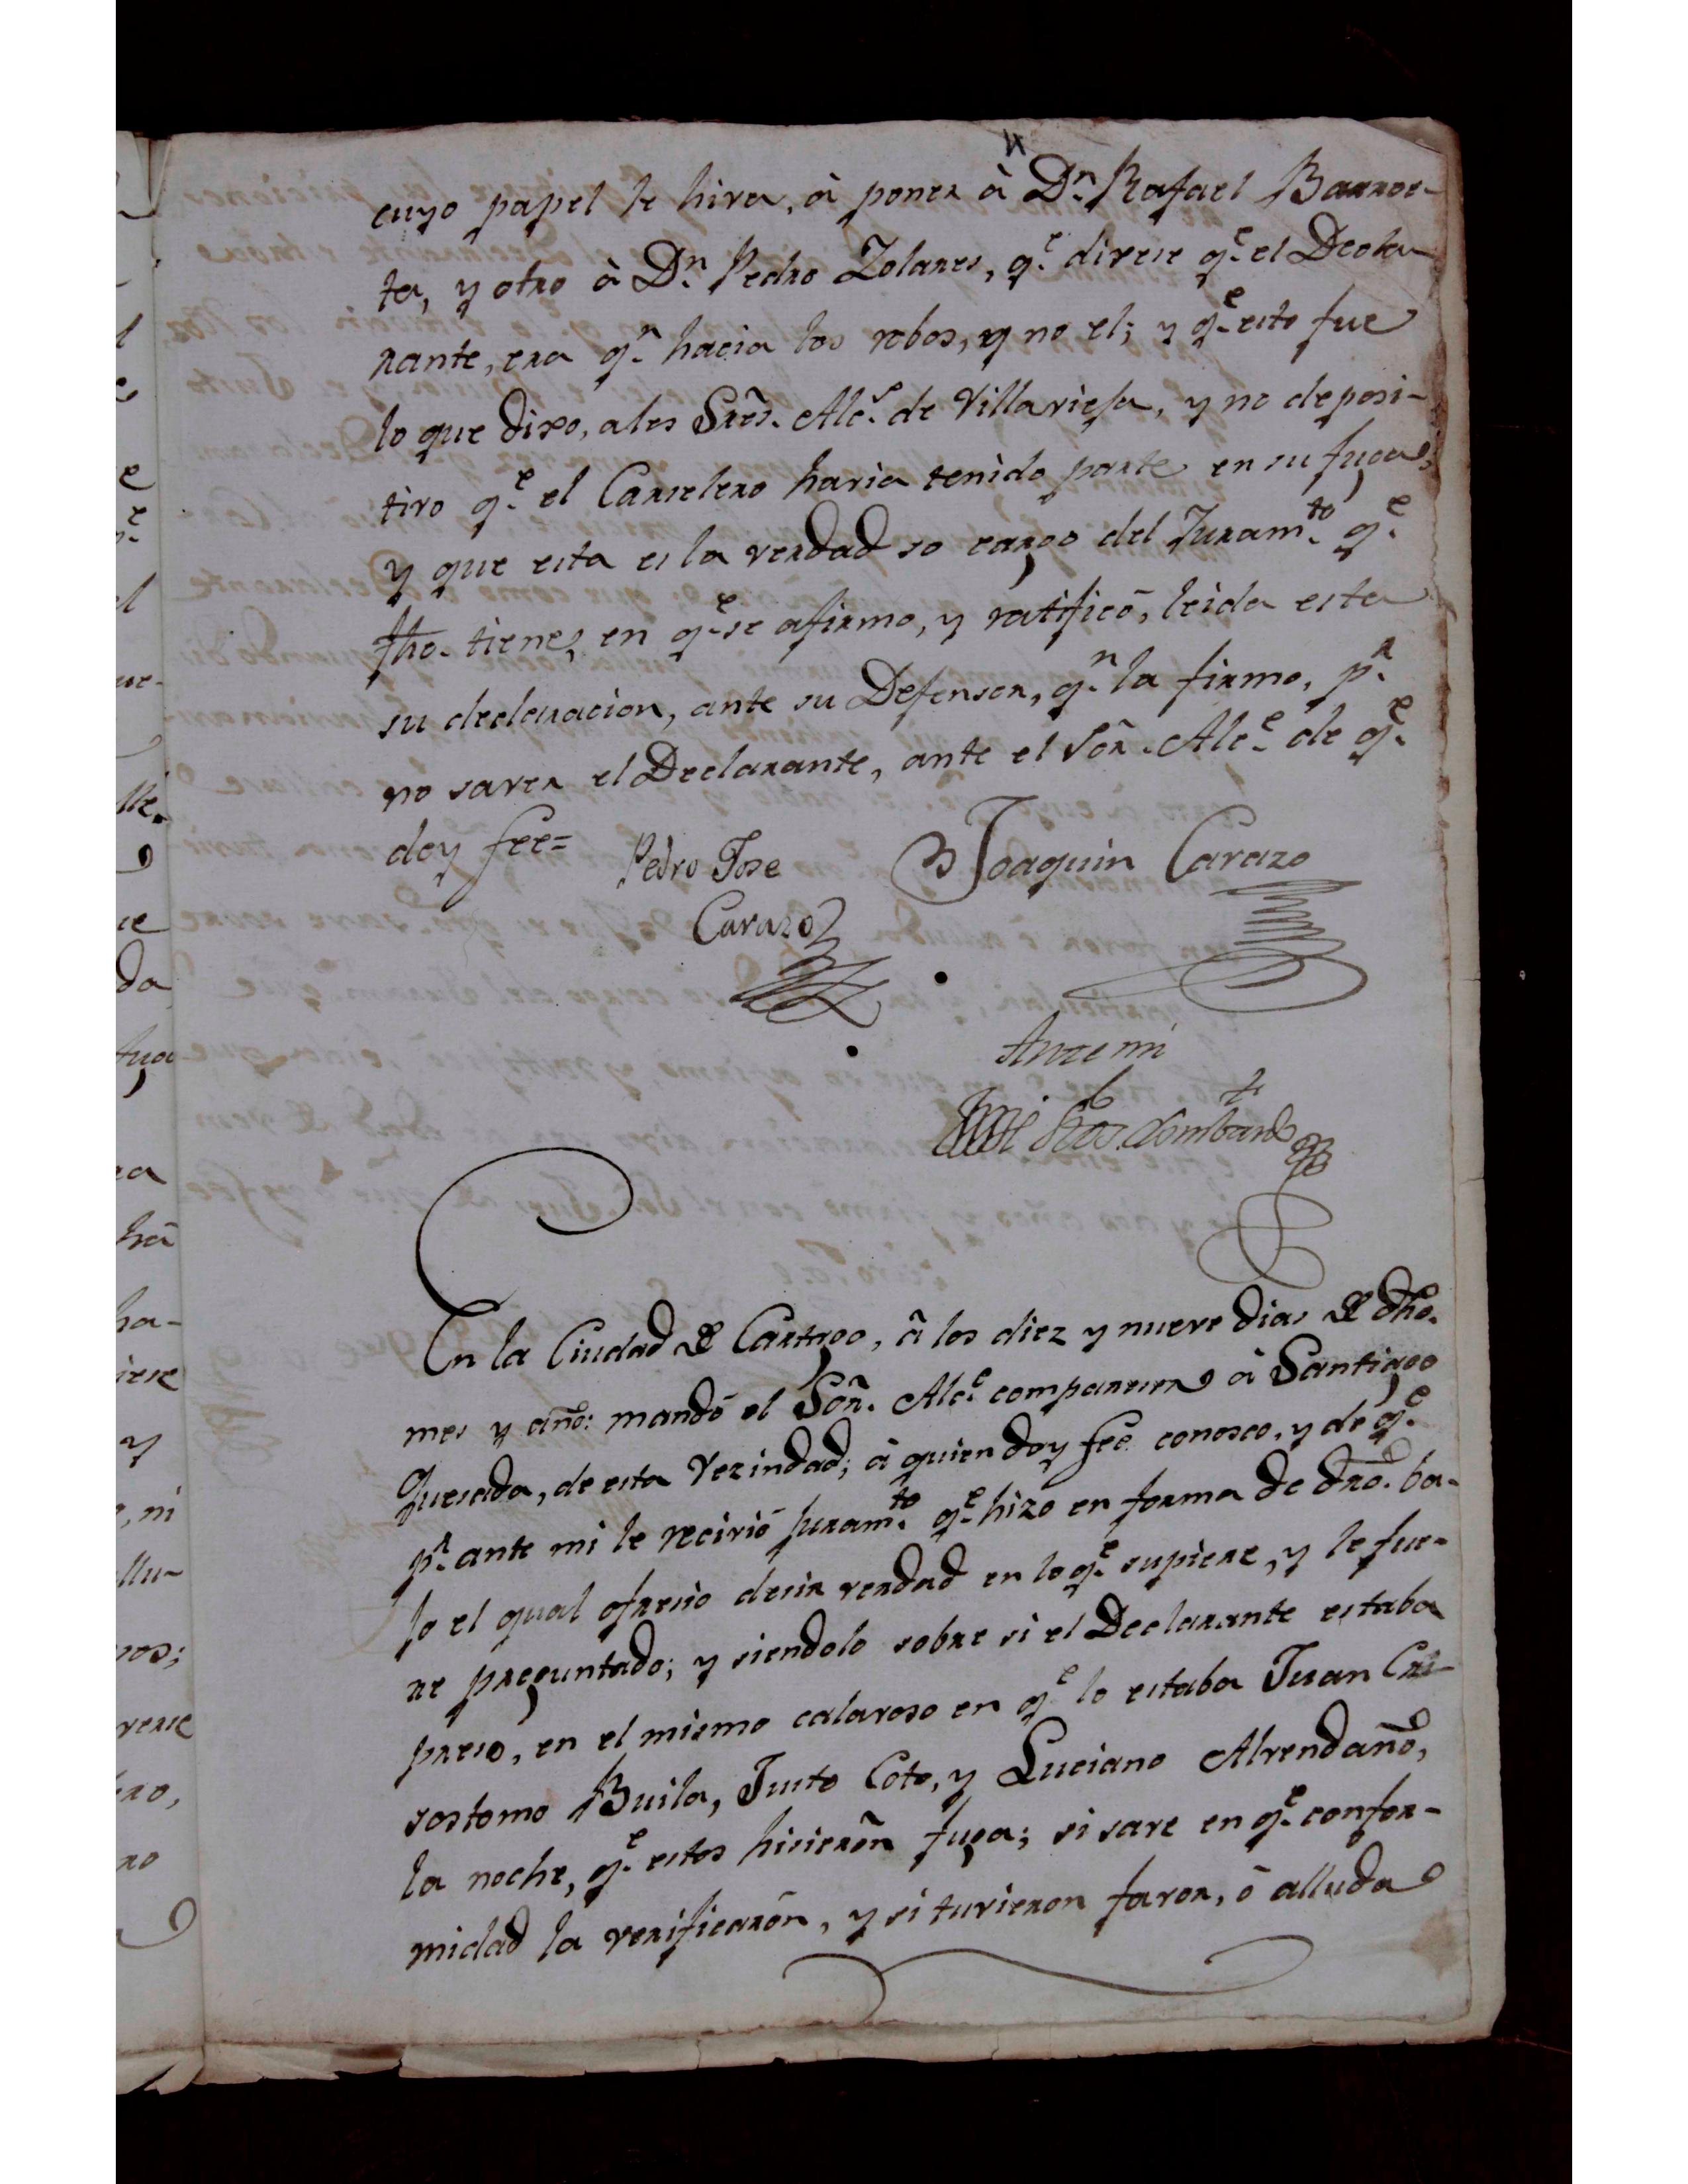 cuyo papel le hiva, à poner à Dn. Rafael Barroe-
ta, y otro à Dn. Pedro Zolares, qe. divese qe. el Decla-
rante, era qn. hacia los robos, y no el; y qe. esto fue
lo que dixo, a los Sres. Alce. de Villavieja, y no deposi-
tivo qe. el Carselero havia tenido parte en su fuga,
y que esta es la verdad so cargo del Juramto. qe.
fho. tiene, en qe. se afirmo, y ratificó, leida esta
su declaracion, ante su Defensor, qn. la firmo, pr.
no saver el Declarante, ante el Sor. Alce. de qe.
doy fee=
Pedro Jose
Carazo
Joaquin Carazo
Ante mi
Lombardo
En la Ciudad de Cartago, â los diez y nueve dias de dho.
mes y año: mandó el Sor. Alce. comparecer à Santiago
Quesada, de esta Vezindad; à quien doy feé conosco, y de qe.
pr. ante mi le recivió juramto. qe. hizo en forma de dro. ba-
jo el qual ofresio desir verdad en lo qe. supiere, y le fue-
re preguntado; y siendolo sobre si el Declarante estaba
preso, en el mismo calavoso en qe. lo estaba Juan Cri-
sostomo Buila, Justo Coto, y Luciano Abendaño,
la noche, qe. estos hisierōn fuga; si save en qe. confor-
midad la verificarōn, y si tuvieron favor, ó alluda